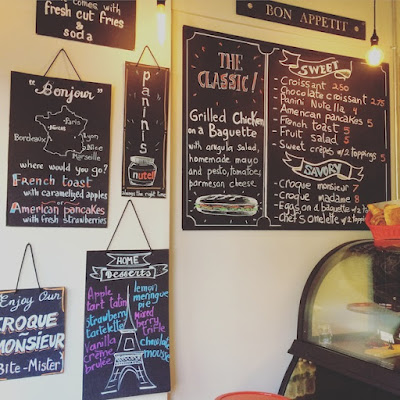 comes with
fresh cut fries
&
soda
BON APPETIT
"Bonjour"
Paris
Bordeaux
Lyon
Nice
Marseille
where would you go?
French Toast
with carameliyed apples
or
American pancakes
with fresh strawberries
Panini's
nutella
always the right time
THE
CLASSIC!
Grilled Chicken
on a Baguette
with arugula salad,
homemade mayo
and pesto, tomatoes,
parmeson cheese
SWEET
Croissant 2.50
Chocolate croissant 2.75
Panini Nutella 4
American pancakes 5
French toast 5
Fruit salad 5
Sweet crêps w/2 toppings 5
SAVORY
Croque monsieur 7
Croque madame 8
Eggs on a baguette w/2
Chef's omelette w/2 toppings
Enjoy Our
CROQUE
MONSIEUR
"Bite-Mister"
HOME
Desserts
Apple
tart tatin
strawberry
tartelette
Vanilla
crème
brulée
lemon
meringue
pie
Mixed
berry
trifle
chocolate
mousse